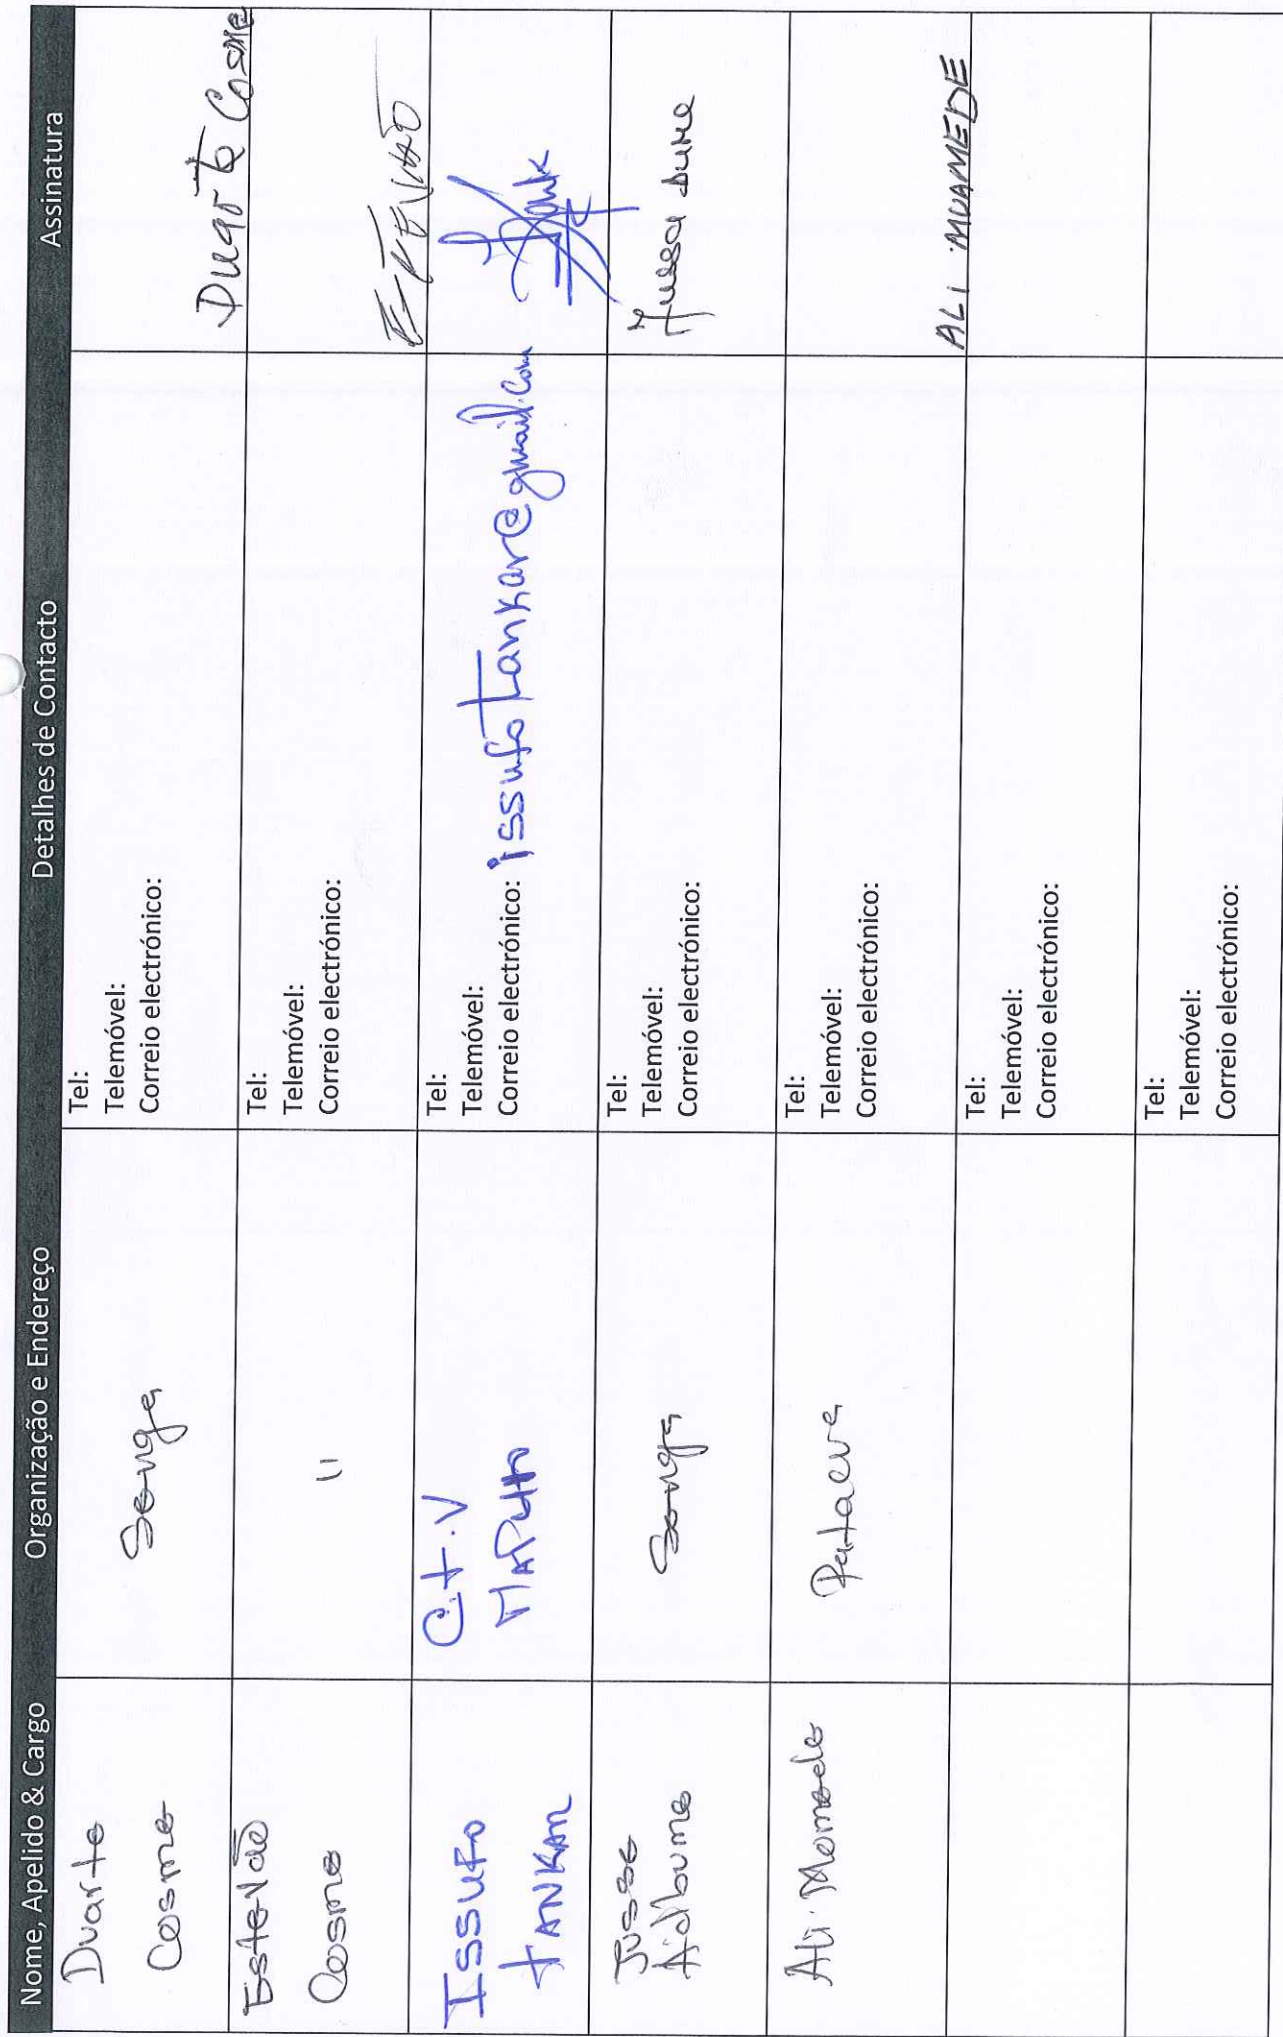 Nome, Apelido & Cargo Organização e Endereço Detalhes de Contacto Assinatura
Duarte
Cosme
Senga
Tel:
Telemóvel:
Correio electrónico:
Duarte Cosme
Estevão
Cosme
"
Tel:
Telemóvel:
Correio electrónico:
ISSUFO
TANKAR
C.T.V
MAPUTO
Tel:
Telemóvel:
Correio electrónico: issufotankar@gmail.com
Jusse
Tel:
Telemóvel:
Correio electrónico:
Ali Momade
Tel:
Telemóvel:
Correio electrónico:
ALI MUAMEDE
Tel:
Telemóvel:
Correio electrónico:
Tel:
Telemóvel:
Correio electrónico: